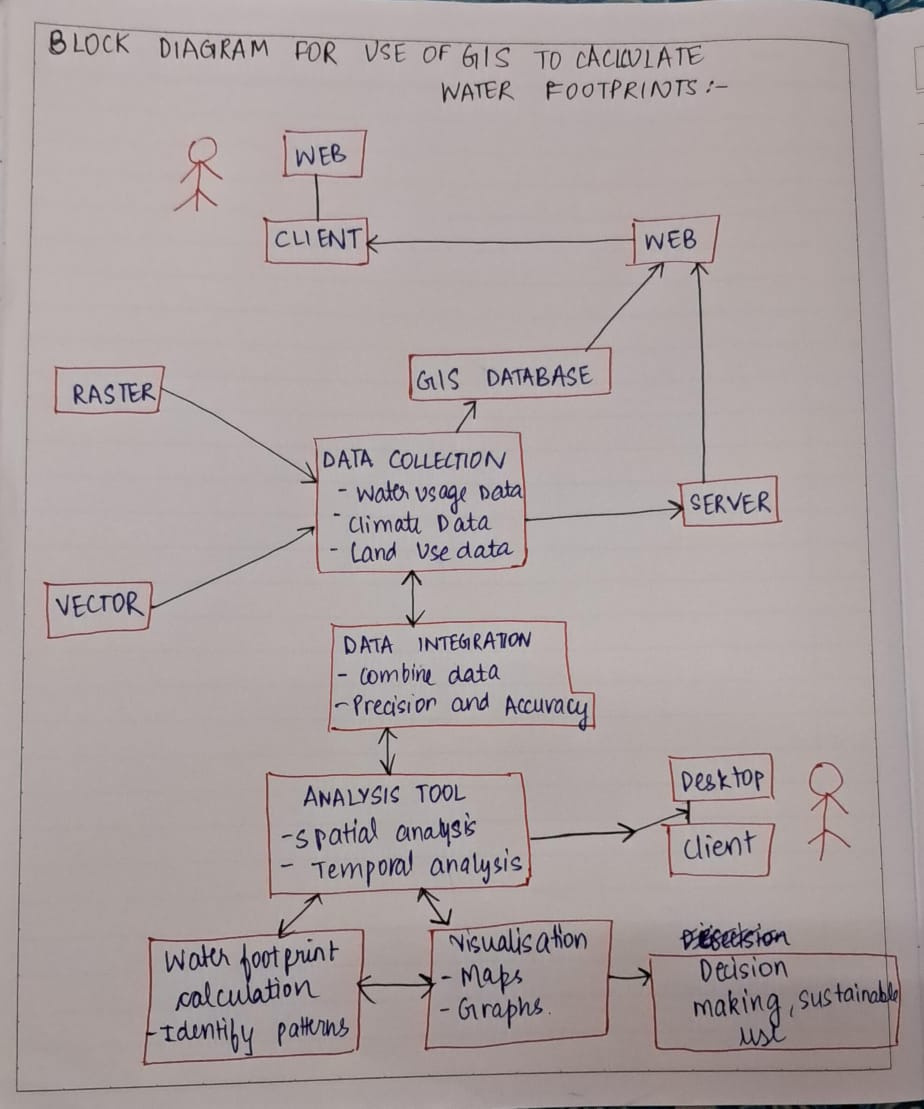 BLOCK DIAGRAM FOR USE OF GIS TO CACLULATE
WATER FOOTPRINTS :-
WEB
CLIENT
WEB
GIS DATABASE
RASTER
DATA COLLECTION
- Water usage Data
- Climate Data
- Land Use data
SERVER
VECTOR
DATA INTEGRATION
- Combine data
- Precision and Accuracy
Desktop
Client
ANALYSIS TOOL
- Spatial analysis
- Temporal analysis
Water footprint
calculation
- Identify patterns
Visualisation
- Maps
- Graphs.
Decision
making, sustainable
use